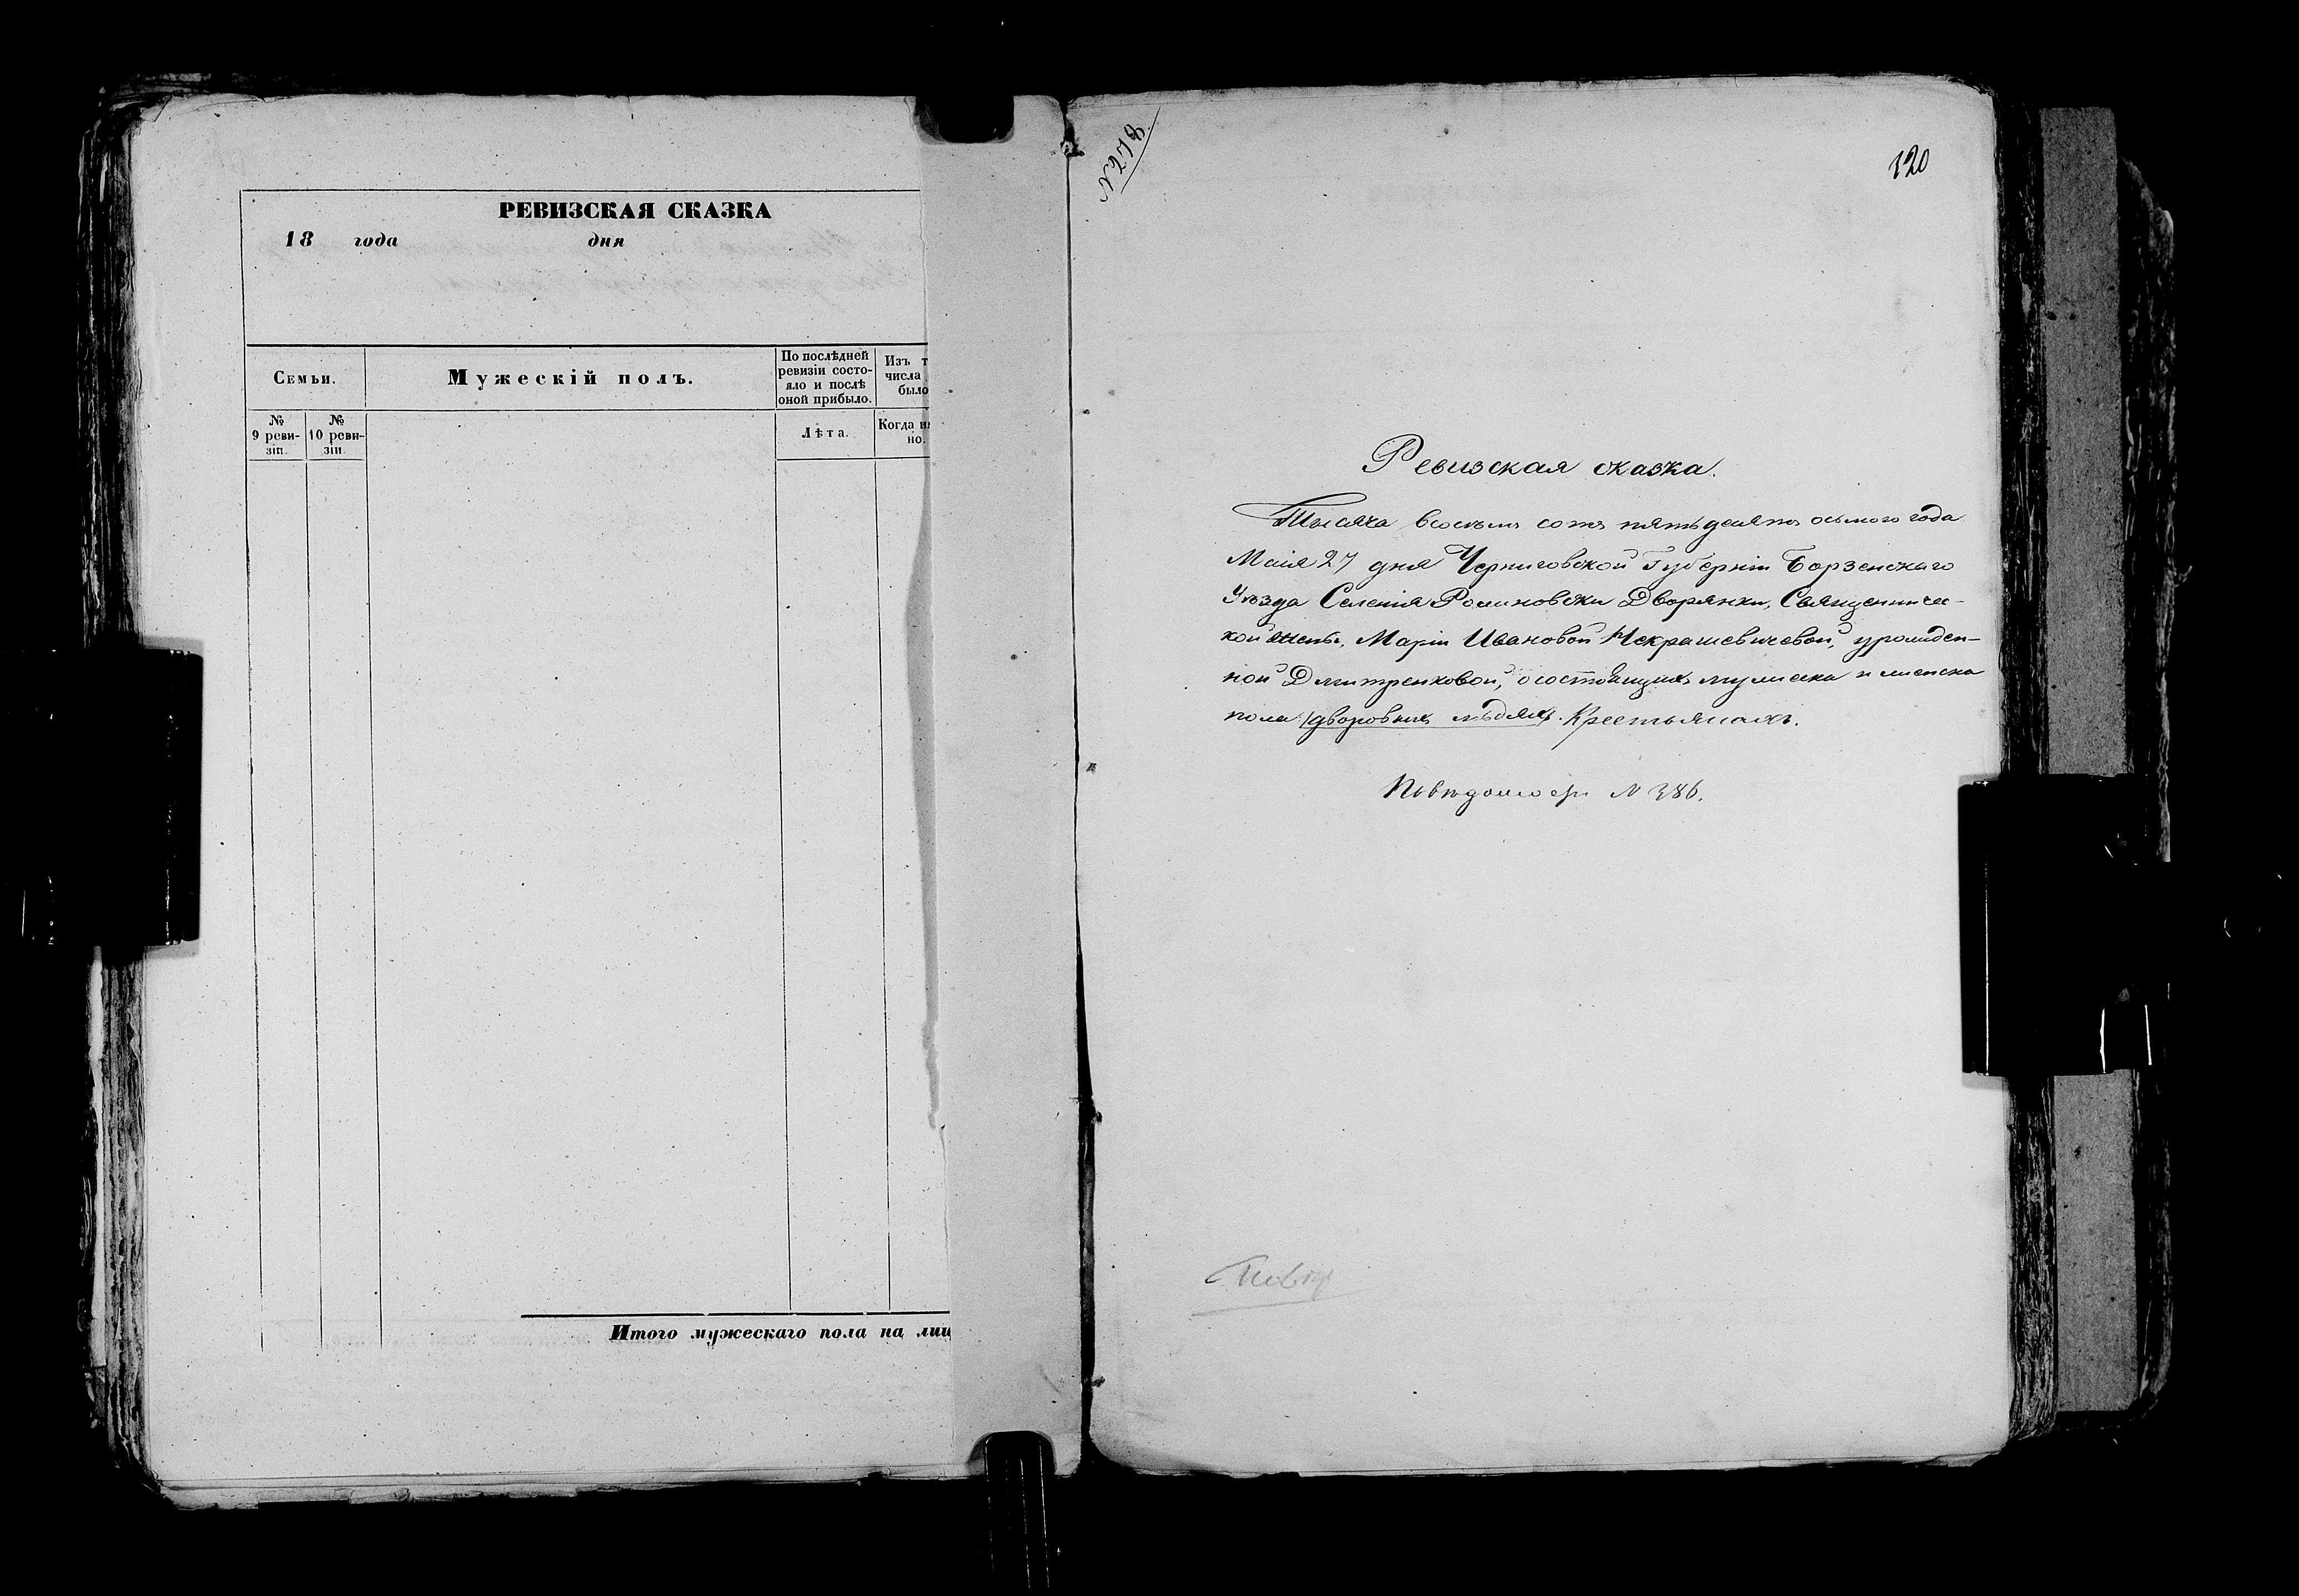 РЕВИЗСКАЯ СКАЗКА
18 года дня
Семьи.
Мужескій полъ.
По послѣдней
ревизіи состо-
яло и послѣ
оной прибыло.
Изъ т
числа
было
№
9 реви-
зіи.
№
10 реви-
зіи.
Лѣта.
Когда и
но.
Итого мужескаго пола на лиц
N 278
120
Ревизская сказка.
Тысяча восемь сотъ пятьдесятъ осьмого года
Маія 27 дня Черниговской Губерніи Борзенскаго
Уѣзда Селенія Рошновки Дворянки, Священничес-
кой жены, Маріи Ивановой Некрашевичевой, урожден-
ной Дмитренковой, о состоящихъ мужеска и женска
пола /дворовыхъ людяхъ/. Крестьянахъ.
N 386.